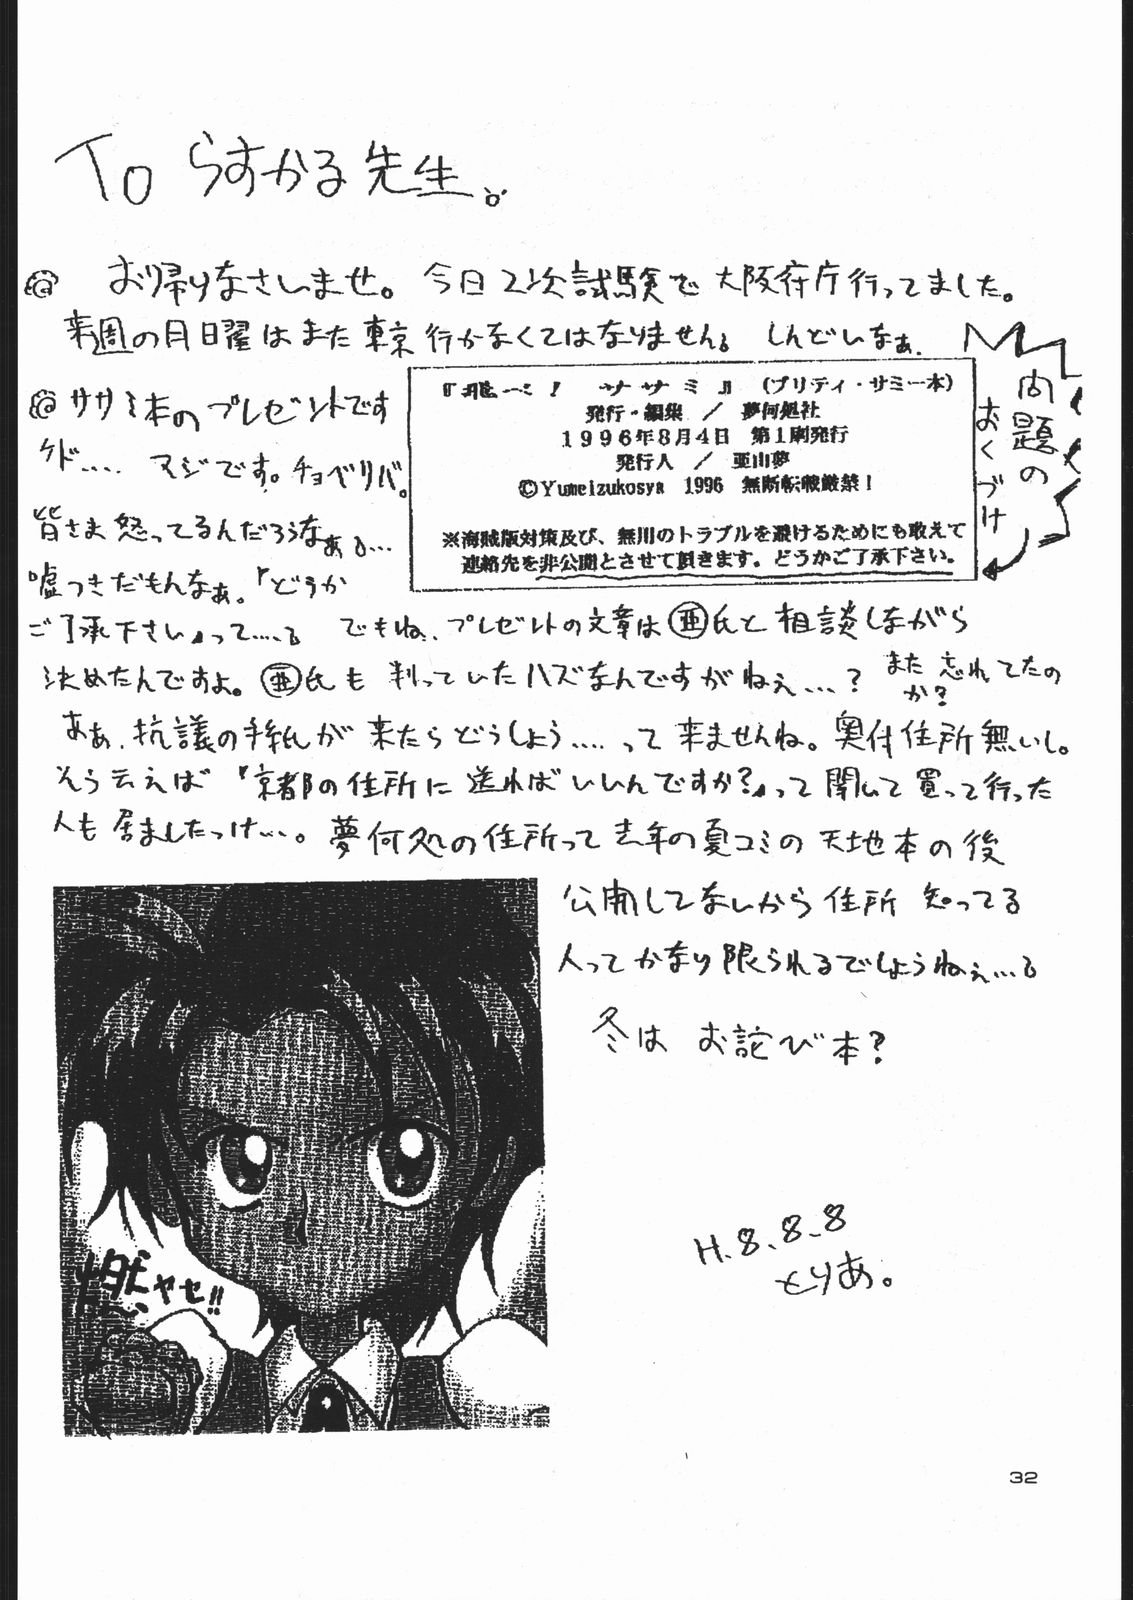 To らすかる先生。
お帰りなさいませ。今日2次試験で大阪府庁行ってました。
来週の月曜日はまた東京行かなくてはなりません。しんどいなぁ。
ササミ本のプレゼントです
ケド‥‥ マジです。チョベリバ。
皆さま怒ってるんだろうなぁ。…
嘘つきだもんなぁ。『どうか
ご了承下さい』って‥‥。でもね、プレゼントの文章は亜氏と相談しながら
決めたんですよ。亜氏も判っていたハズなんですがねぇ…? また忘れてたの
か?
ああ、抗議の手紙が来たらどうしよう‥‥って来ませんね。奥付住所無いし。
そう云えば『京都の住所に送ればいいんですか?』って聞いて買って行った
人も居ましたっけ…。夢何処の住所って去年の夏コミの天地本の後
公開してないから住所知ってる
人ってかなり限られるでしょうねぇ…。
冬は お詫び本?
問題の
おくづけ
『飛べ! ササミ』 (プリティ・サミー本)
発行・編集 / 夢何処社
1996年8月4日 第1刷発行
発行人 / 亜山夢
©Yumeizukosya 1996 無断転載厳禁!
※海賊版対策及び、無用のトラブルを避けるためにも敢えて
連絡先を非公開とさせて頂きます。どうかご了承下さい。
燃ヤセ!!
H.8.8.8
とりあ。
32